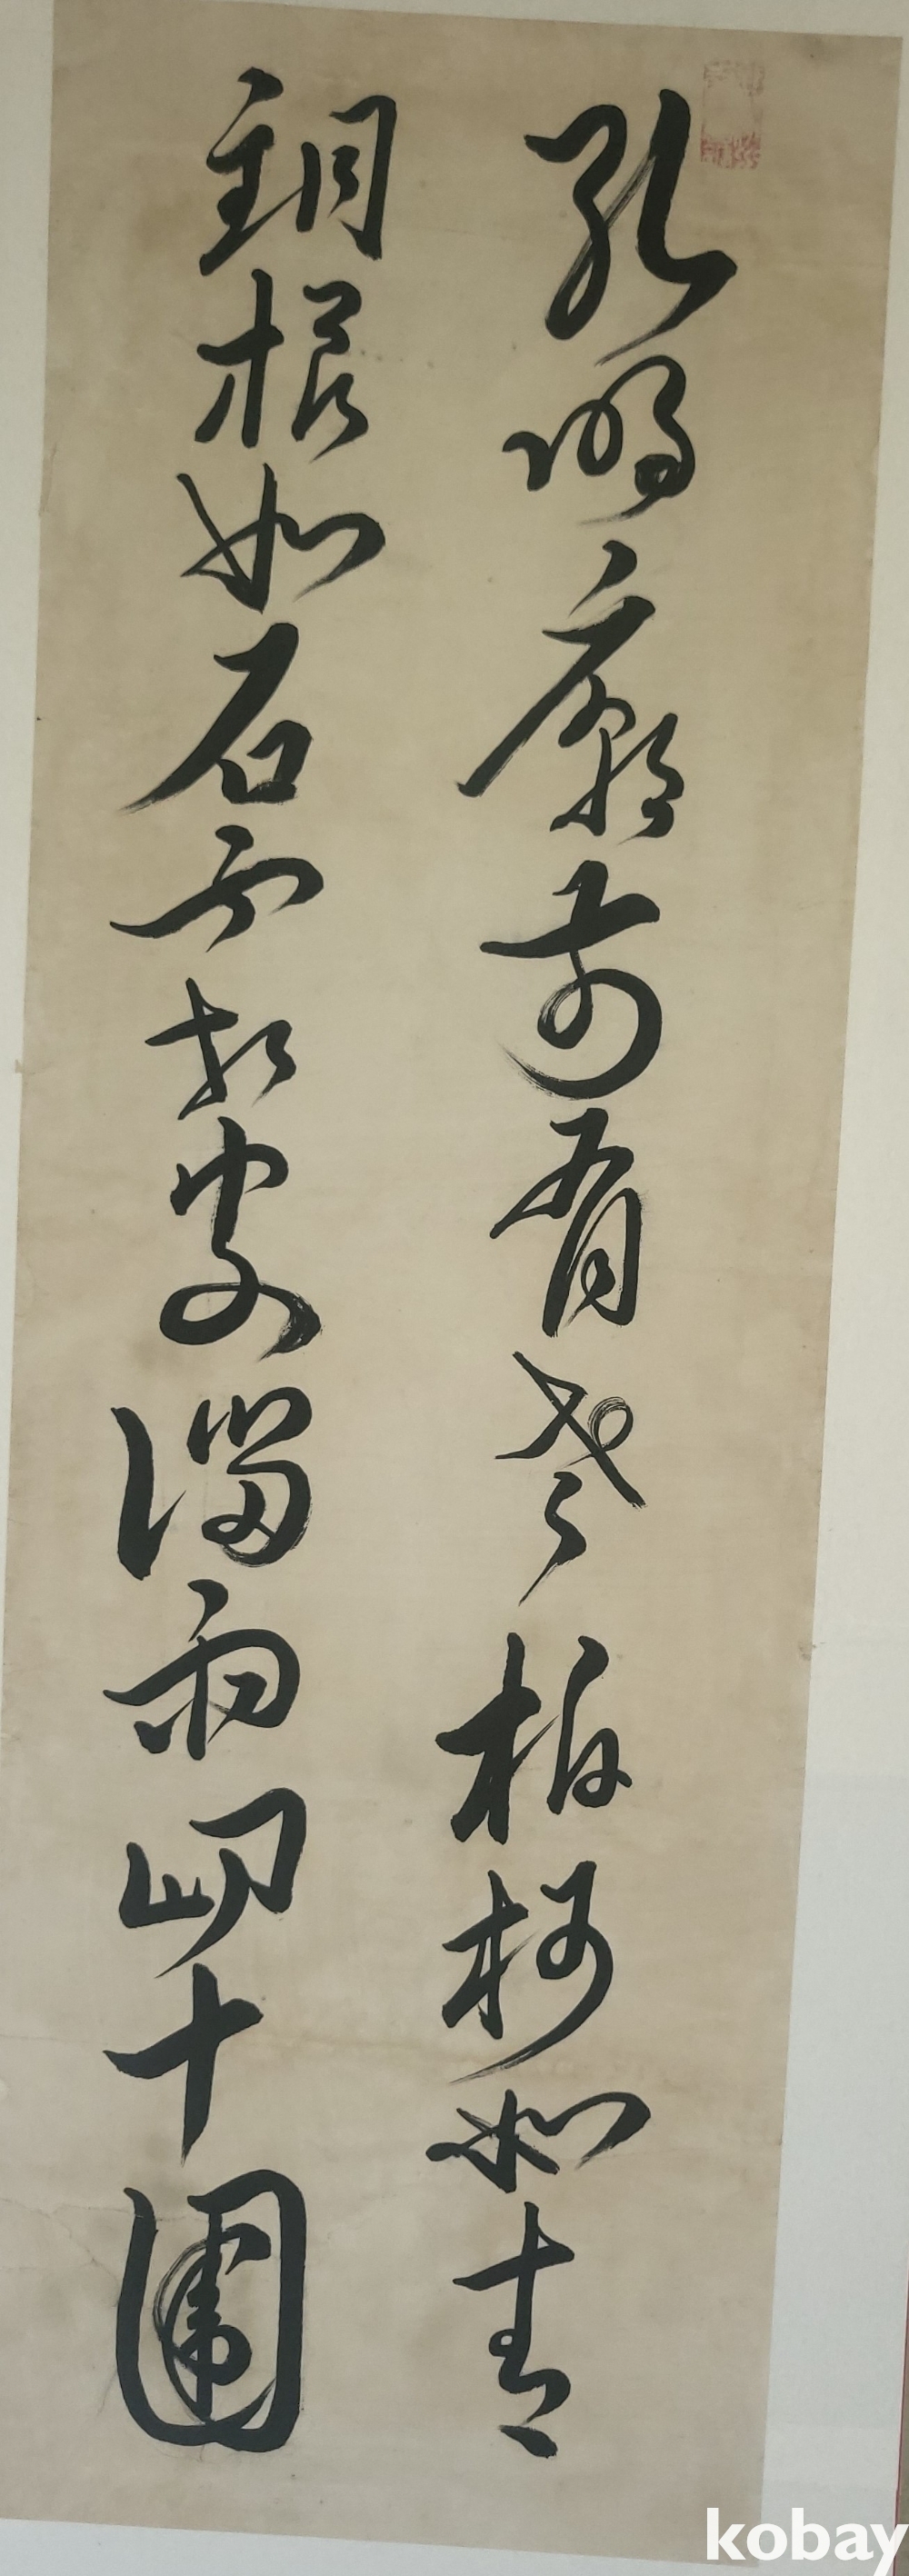 孔明廟前有老柏柯如青
銅根如石霜皮溜雨四十圍
kobay